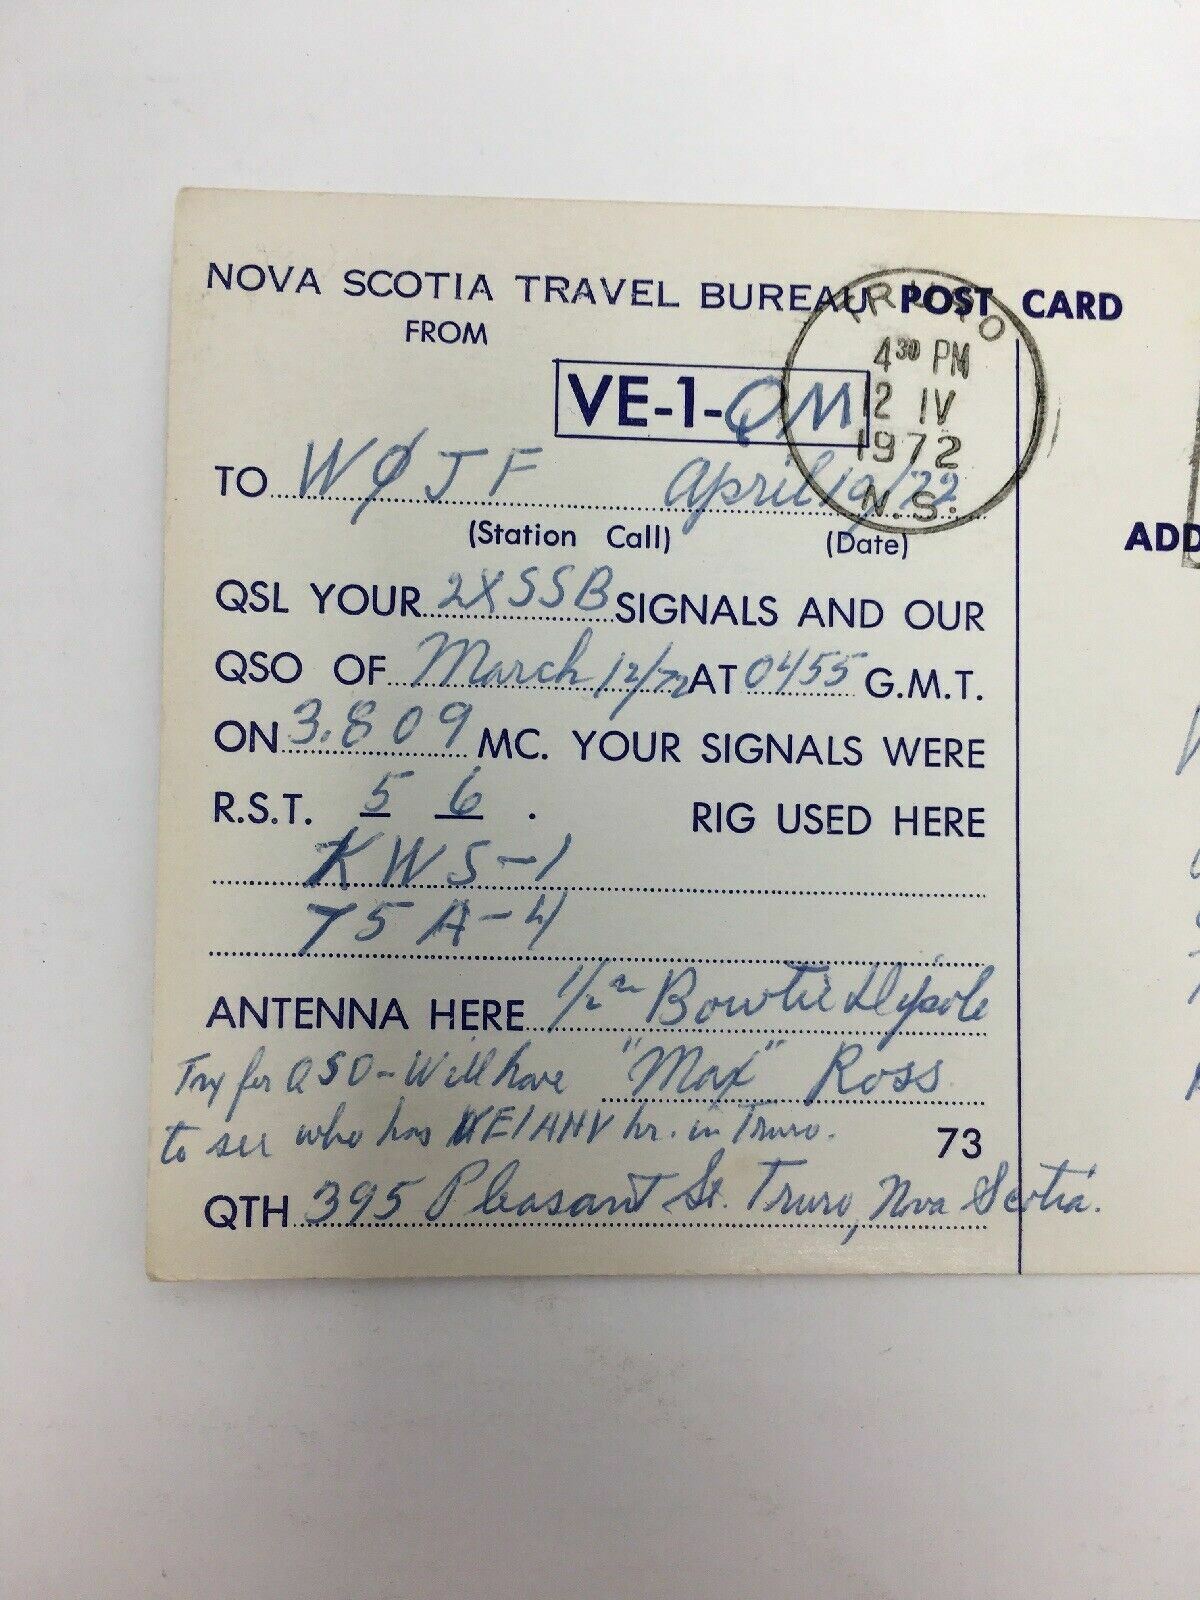 NOVA SCOTIA TRAVEL BUREAU POST CARD
FROM
VE-1-QM
TRURO
4 30 PM
12 IV
1972
N.S.
TO WØJF April 19/72
(Station Call) (Date)
ADD
QSL YOUR 2XSSB SIGNALS AND OUR
QSO OF March 12/72 AT 0455 G.M.T.
ON 3.809 MC. YOUR SIGNALS WERE
R.S.T. 5 6 . RIG USED HERE
KWS-1
75A-4
ANTENNA HERE 1/2 Bowtie Dypole
Try for QSO - Will have "Max" Ross
to see who has VE1ANV hr. in Truro. 73
QTH 395 Pleasant St. Truro, Nova Scotia.